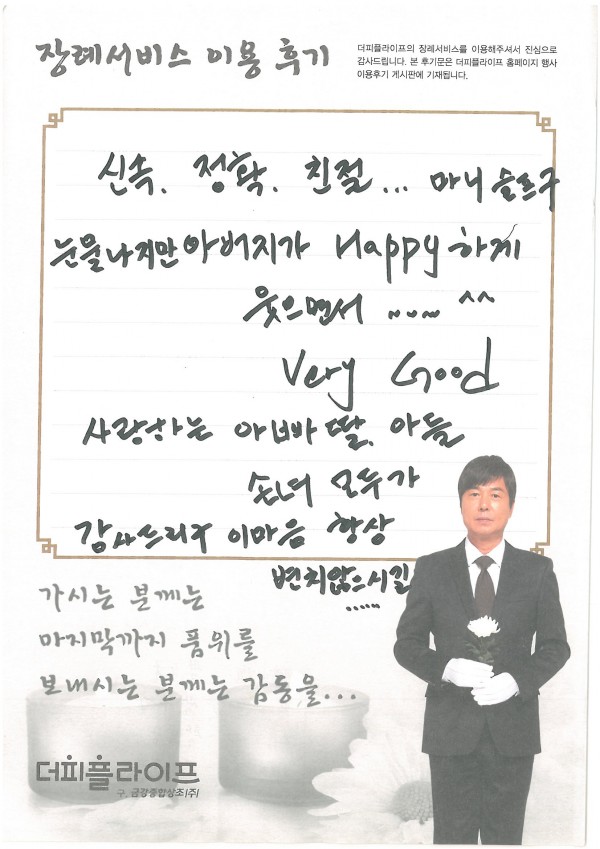 장례서비스 이용 후기
더피플라이프의 장례서비스를 이용해주셔서 진심으로
감사드립니다. 본 후기문은 더피플라이프 홈페이지 행사
이용후기 게시판에 기재됩니다.
신속, 정확, 친절... 마니 슬프구
눈물나지만 아버지가 Happy 하게
웃으면서 ...... ^^
Very Good
사랑하는 아빠 딸, 아들
손녀 모두가
감사드리구 이마음 항상
변치않으시길
.....
가시는 분께는
마지막까지 품위를
보내시는 분께는 감동을...
더피플라이프
구. 금강종합상조(주)